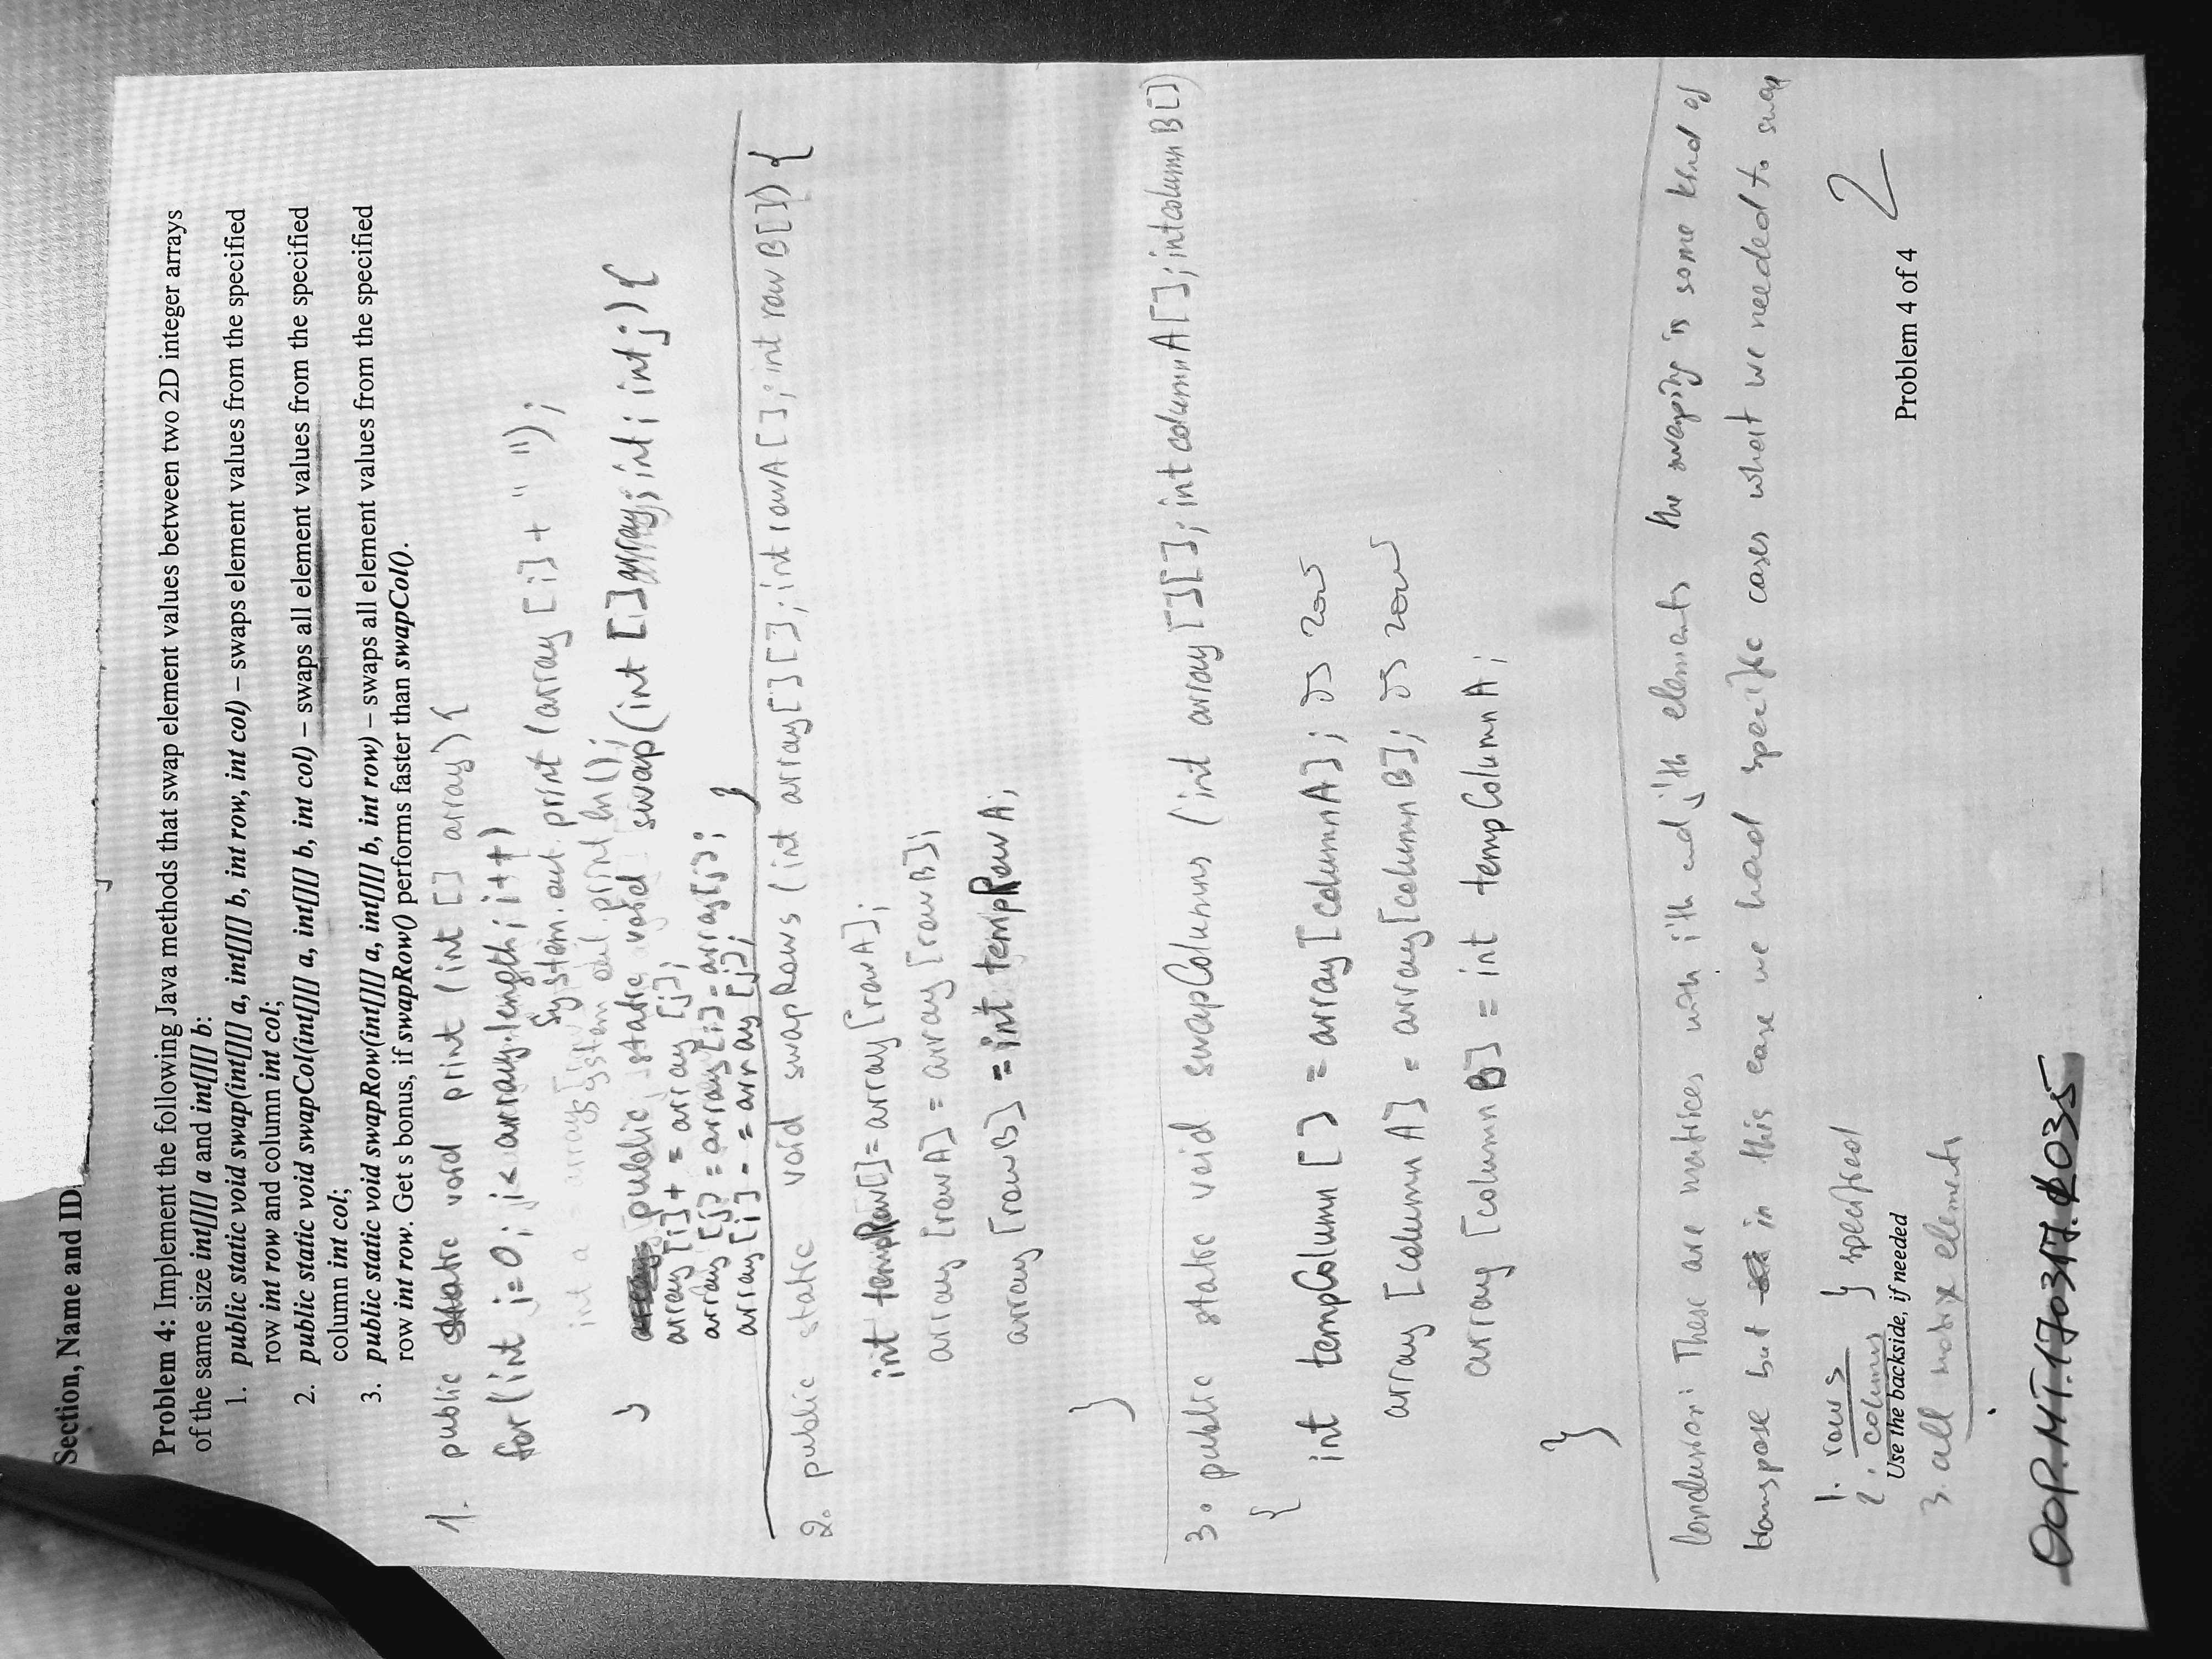 Section, Name and ID
Problem 4: Implement the following Java methods that swap element values between two 2D integer arrays
of the same size int[][] a and int[][] b:
1. public static void swap(int[][] a, int[][] b, int row, int col) – swaps element values from the specified
row int row and column int col;
2. public static void swapCol(int[][] a, int[][] b, int col) – swaps all element values from the specified
column int col;
3. public static void swapRow(int[][] a, int[][] b, int row) – swaps all element values from the specified
row int row. Get s bonus, if swapRow() performs faster than swapCol().
1. public static void print (int [] array) {
for (int i=0; i< array.length; i++)
System.out.print (array [i] + " ");
int a = array
System out.println();
} public static void swap(int [] array; int i int j) {
array [i] + = array [j];
array [j] = array [i] - array[j];
array [i] - = array [j]; }
2. public static void swapRows (int array[][]; int rowA[]; int row B[]) {
int tempRow[] = array [rowA];
array [row A] = array [row B];
array [row B] = int tempRow A;
}
3. public static void swapColumns (int array [][]; int column A[]; int column B[])
{
int tempColumn [] = array [columnA];
array [column A] = array [column B];
array [column B] = int tempColumn A;
}
Conclusion: These are matrices with i'th and j'th elements the swaping is some kind of
transpose but in this case we had specific cases what we needed to swap
1. rows } specified
2. columns
Use the backside, if needed
Problem 4 of 4 2
3. all matrix elements
OOP.MT.170317. 035